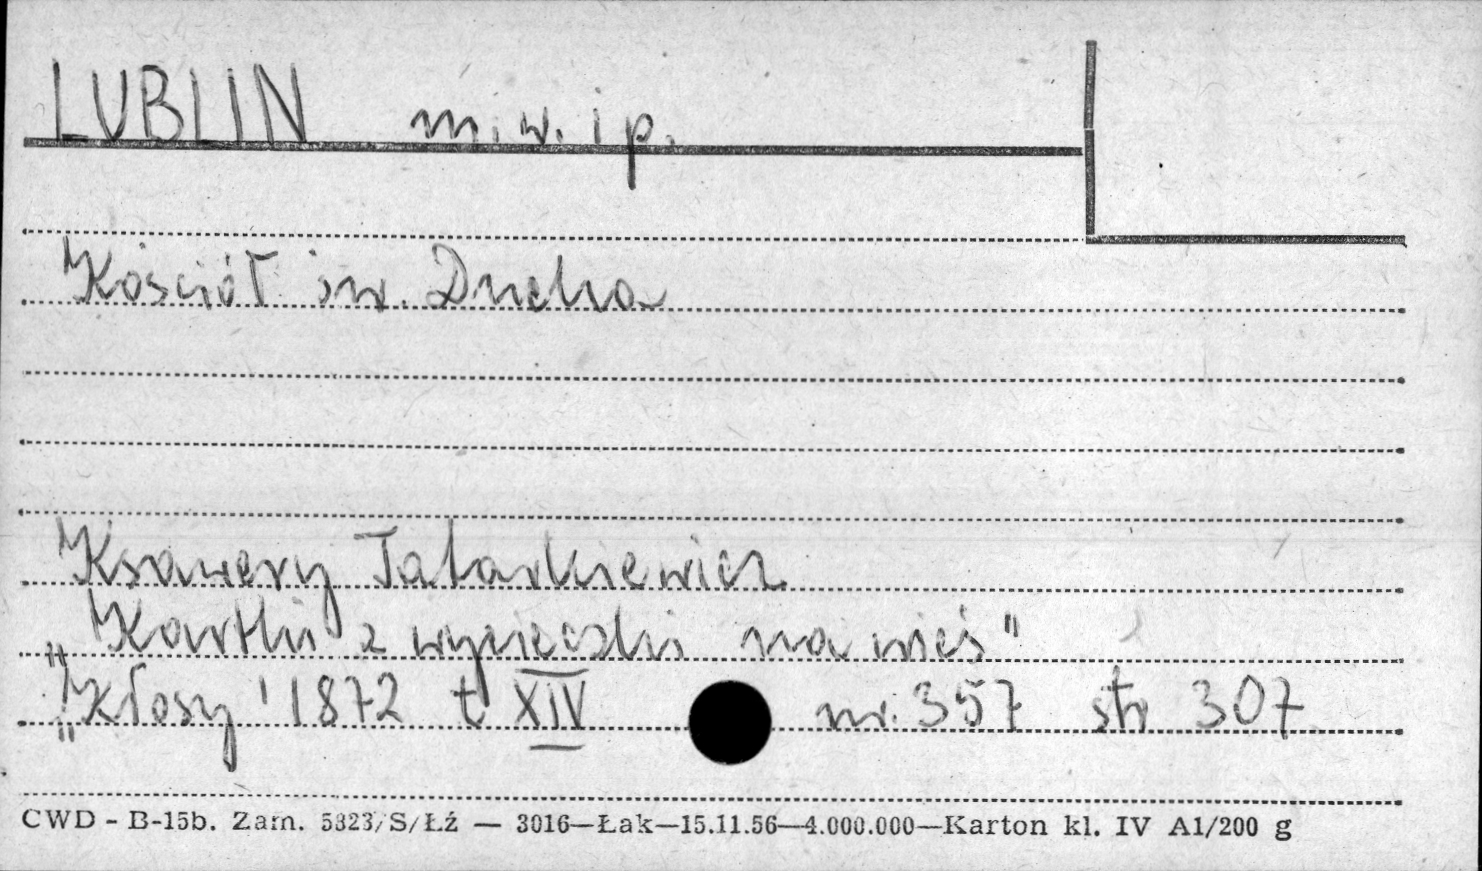 LUBLIN m. w. i p.
Kościół św. Ducha
Ksawery Tatarkiewicz
„Kartki z wycieczki na wieś"
„Kłosy" 1872 t XIV nr. 357 str 307
CWD - B-15b. Zam. 5323/S/Łź — 3016—Łak—15.11.56—4.000.000—Karton kl. IV A1/200 g